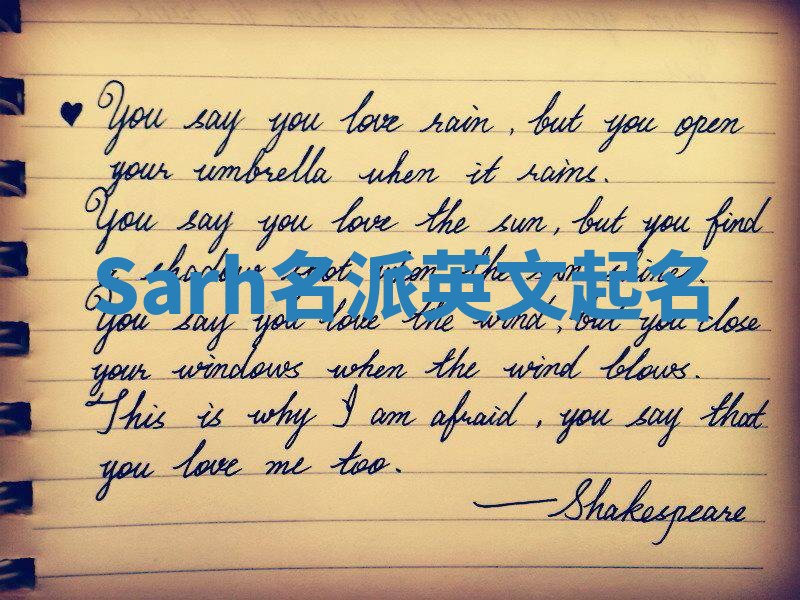 ♥ You say you love rain, but you open
your umbrella when it rains.
You say you love the sun, but you find
a shadow spot when the sun shines.
Sarh名派英文起名
You say you love the wind, but you close
your windows when the wind blows.
This is why I am afraid, you say that
you love me too.
— Shakespeare